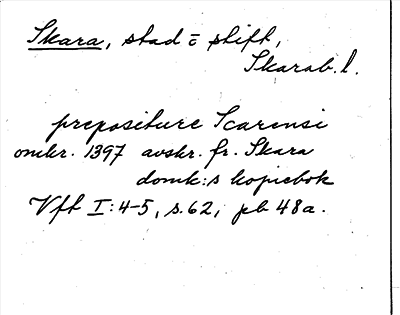 Skara, stad o stift,
Skarab. l.
prepositure Scarensi
omkr. 1397 avskr. fr. Skara
domk:s kopiebok
Vft I:4-5, s. 62, pb 48a.